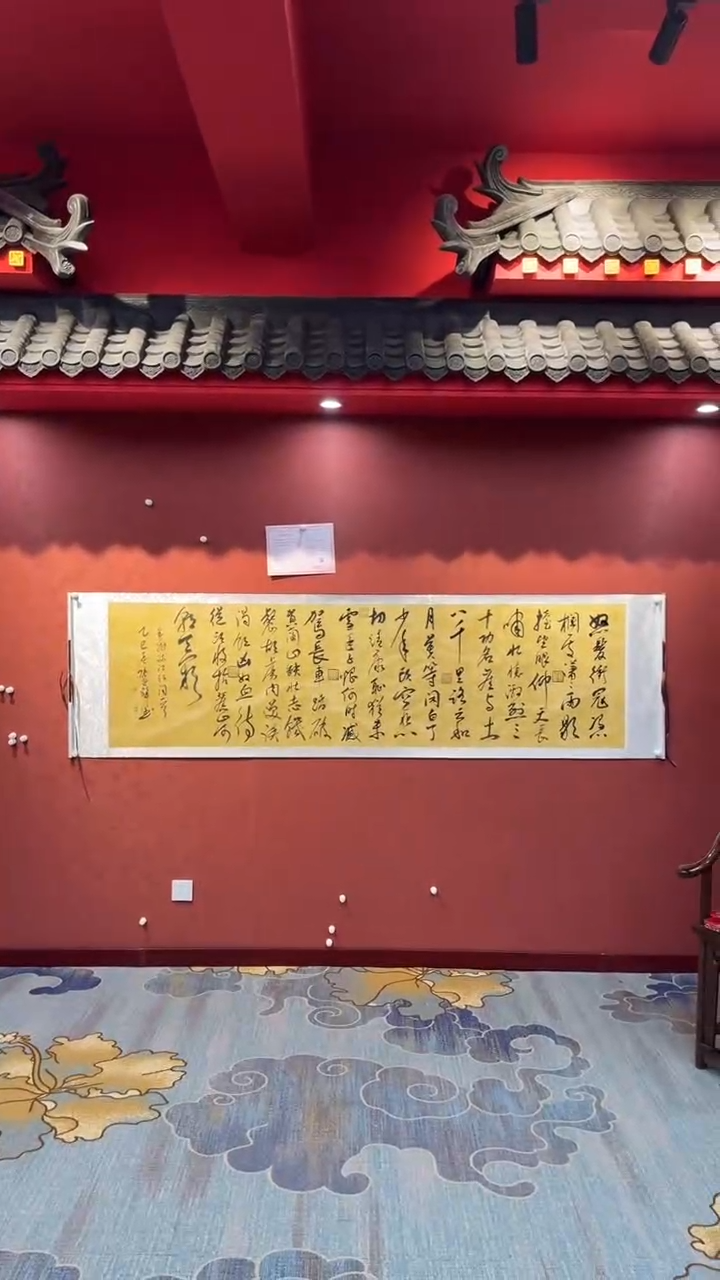 怒髮衝冠憑
欄處瀟瀟雨歇
抬望眼仰天長
嘯壯懷激烈三
十功名塵与土
八千里路云和
月莫等闲白了
少年頭空悲
切靖康恥猶未
雪臣子恨何時滅
駕長車踏破
賀蘭山缺壯志饑
餐胡虜肉笑談
渴飲匈奴血待
從頭收拾舊山河
朝天闕
滿江紅
乙巳年 書